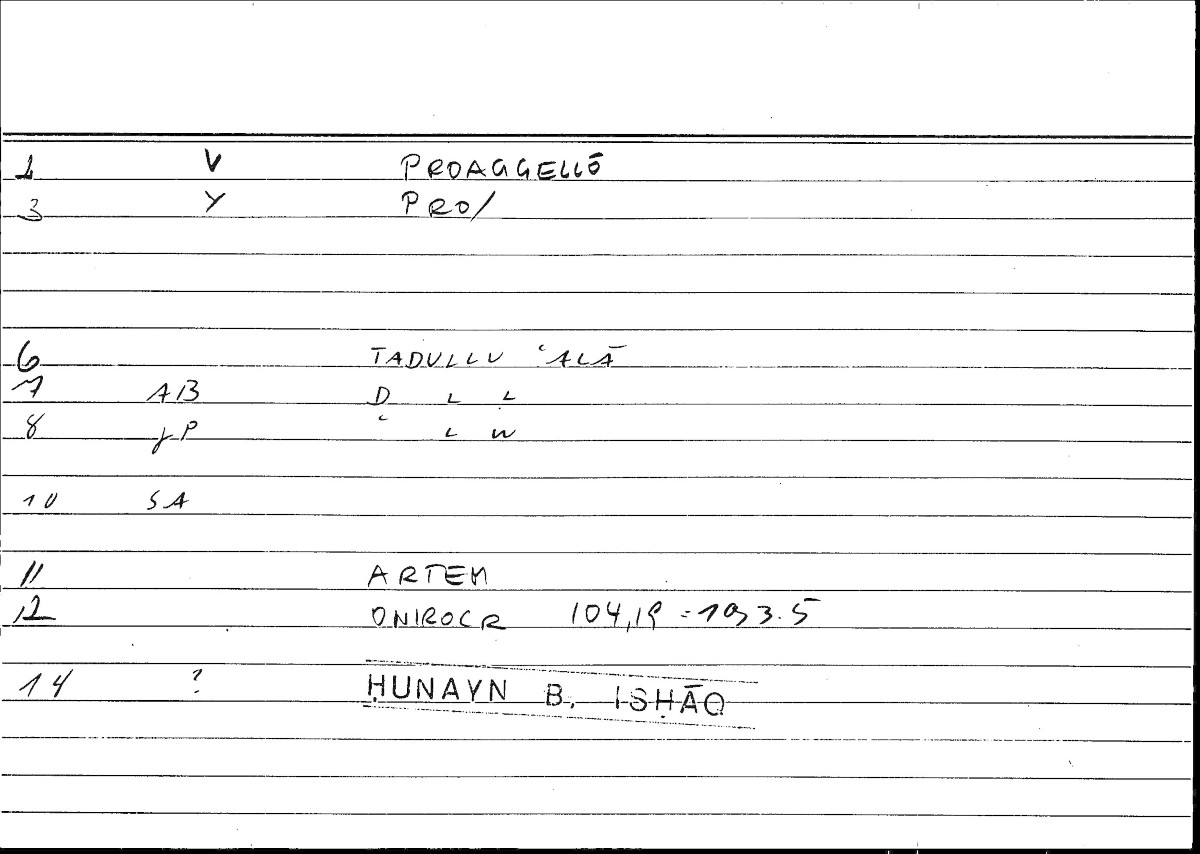 1 V PROAGGELLŌ
3 Y PRO/
6 TADULLU ʿALĀ
7 AB D L L
8 JP ʿ L W
10 SA
11 ARTEM
12 ONIROCR 104,19 = 193.5
14 ? ḤUNAYN B. ISḤĀQ